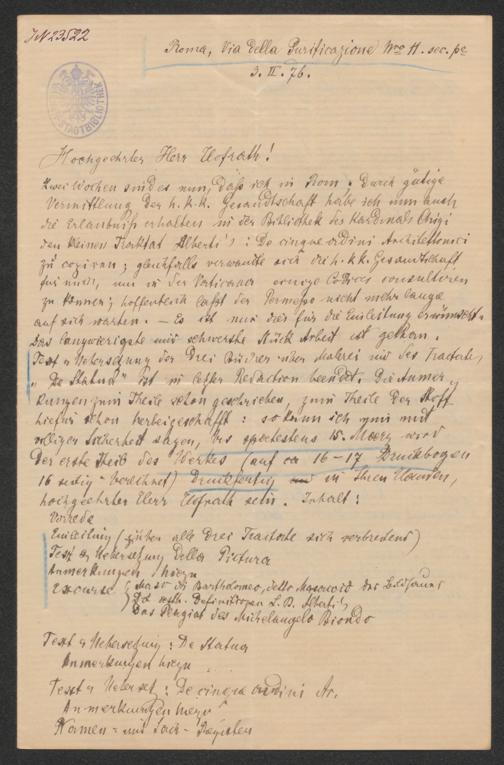 JN 23522
Roma, Via della Purificazione Nro 11. sec. po
3. II. 76.
STADTBIBLIOTHEK
Hochgeehrter Herr Hofrath!
Zwei Wochen sind es nun, daß ich in Rom. Durch gütige
Vermittlung der h. k. k. Gesandtschaft habe ich nun auch
die Erlaubniß erhalten in der Bibliothek des Kardinals Chigi
den kleinen Tracktat Alberti's: De cinque ordini Architettonici
zu copiren; gleichfalls verwandte sich die h. k. k. Gesandtschaft
für mich, um in der Vaticana einige Codices consultiren
zu können; hoffentlich laßt der Permesso nicht mehr lange
auf sich warten. – Es ist nur dies für die Einleitung
Das langwierigste und schwerste Stück Arbeit ist gethan.
Text u Uebersetzung der Drei Bücher über Malerei und des Tractats
„De Statua" ist in letzter Redaction beendet. Die Anmer-
kungen zum Theile schon geschrieben, zum Theile der Stoff
hiefür schon herbeigeschafft: so kann ich nun mit
völliger Sicherheit sagen, bis spätestens 15. Maerz wird
der erste Theil des Werkes (auf ca 16–17 Druckbogen
16 seitig berechnet) Druckfertig in Ihren Händen,
hochgeehrter Herr Hofrath sein. Inhalt:
Vorrede
Einleitung (über alle drei Tractate sich verbreitend)
Text u Uebersetzung Della Pictura
Anmerkungen hiezu
Excurse (Maso di Bartholomeo, detto Masaccio der Bildhauer
Definitionen L. B. Alberti's
Das Plagiat des Michelangelo Biondo
Text u Uebersetzung: De Statua
Anmerkungen hiezu
Text u Uebersetz: De cinque ordini Ar.
Anmerkungen hiezu
Namen- und Sach-Register